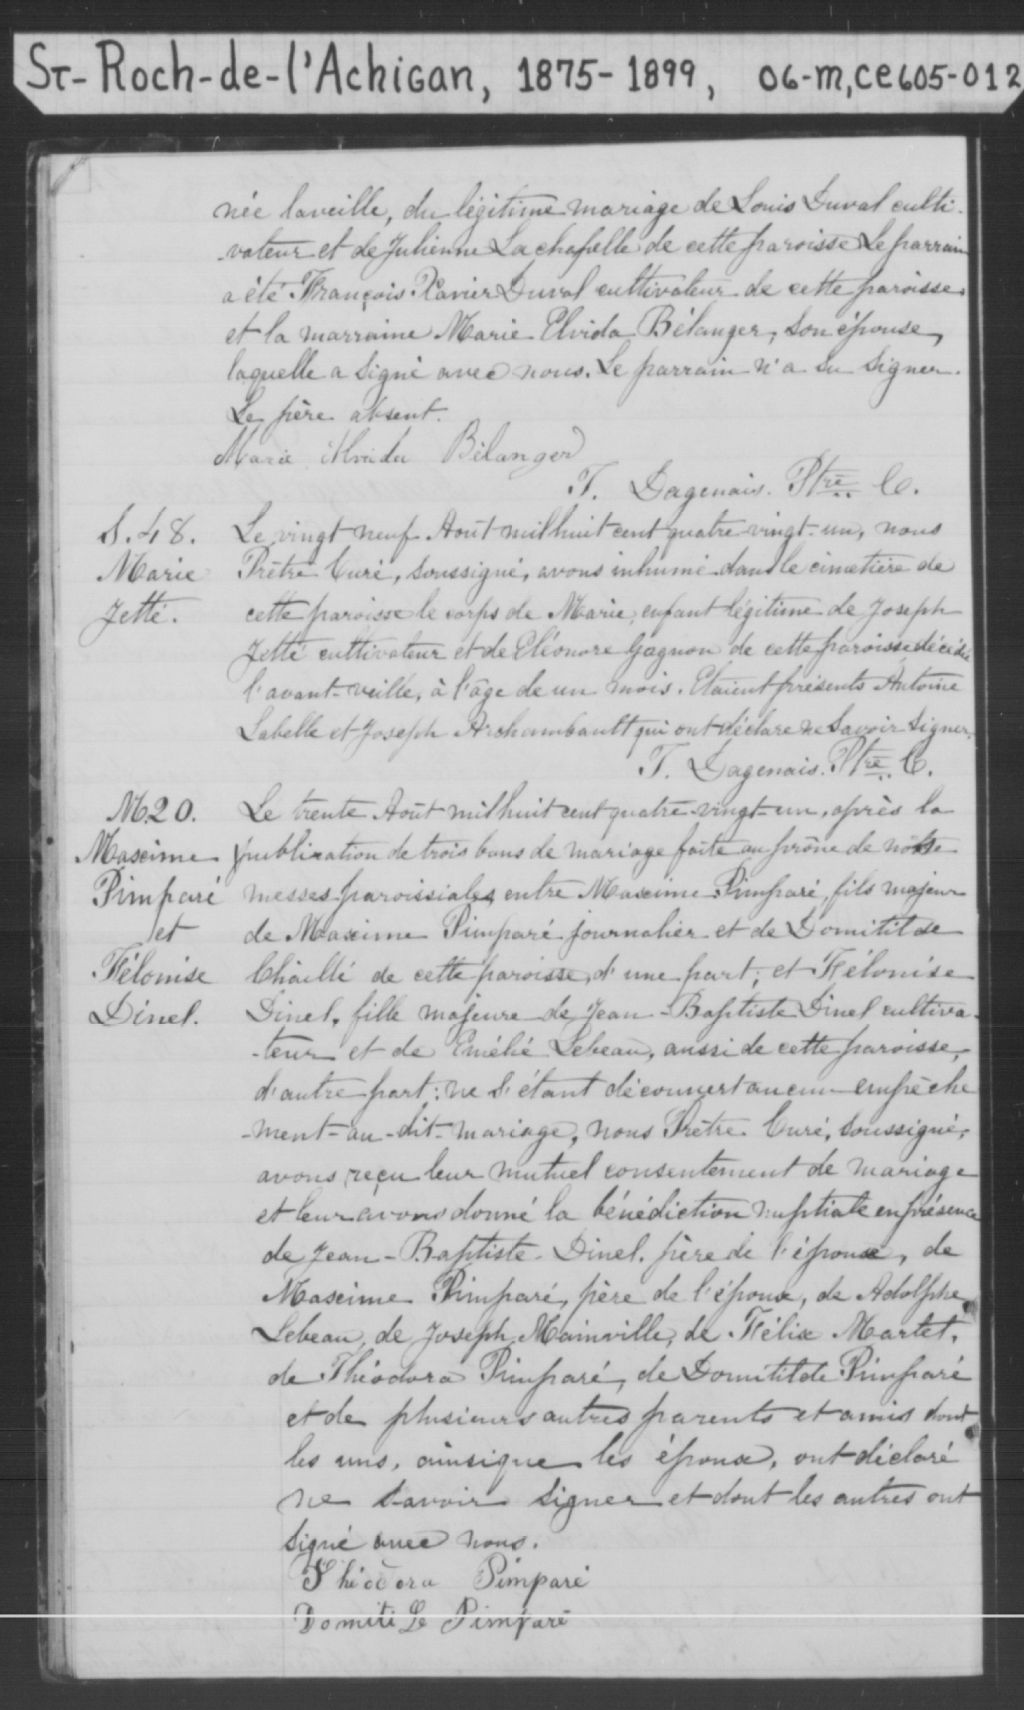 St-Roch-de-l'Achigan, 1875-1899, 06-M, CE605-012
née la veille, du légitime mariage de Louis Duval culti-
-vateur et de Julienne Lachapelle de cette paroisse. Le parrain
a été François-Xavier Duval cultivateur de cette paroisse
et la marraine Marie Elvida Bélanger, son épouse,
laquelle a signé avec nous. Le parrain n'a su signer.
Le père absent.
Marie Bélanger
T. Dagenais. Ptre C.
S. 48.
Marie
Jetté.
Le vingt neuf Août mil huit cent quatre-vingt-un, nous
Prêtre Curé, soussigné, avons inhumé dans le cimetière de
cette paroisse le corps de Marie, enfant légitime de Joseph
Jetté cultivateur et de Eléonore Gagnon de cette paroisse décédée
l'avant-veille, à l'âge de un mois. Etaient présents Antoine
Labelle et Joseph Archambault qui ont déclaré ne savoir signer.
T. Dagenais. Ptre C.
M. 20.
Maxime
Pimparé
et
Félonise
Dinel.
Le trente Août mil huit cent quatre-vingt-un, après la
publication de trois bans de mariage faite au prône de
messes paroissiales entre Maxime Pimparé, fils majeur
de Maxime Pimparé journalier et de Domitilde
Chaillé de cette paroisse, d'une part; et Félonise
Dinel, fille majeure de Jean-Baptiste Dinel cultiva-
-teur et de Emélie Lebeau, aussi de cette paroisse,
d'autre part: ne s'étant découvert aucun empêche
-ment-au-dit-mariage, nous Prêtre Curé, soussigné,
avons reçu leur mutuel consentement de mariage
et leur avons donné la bénédiction nuptiale en présence
de Jean-Baptiste-Dinel, père de l'épouse, de
Maxime Pimparé, père de l'époux, de Adolphe
Lebeau, de Joseph Mainville, de Félix Martel,
de Théodora Pimparé, de Domitilde Pimparé
et de plusieurs autres parents et amis dont
les uns, ainsi que les époux, ont déclaré
ne savoir signer et dont les autres ont
signé avec nous.
Théodora Pimparé
Pimparé